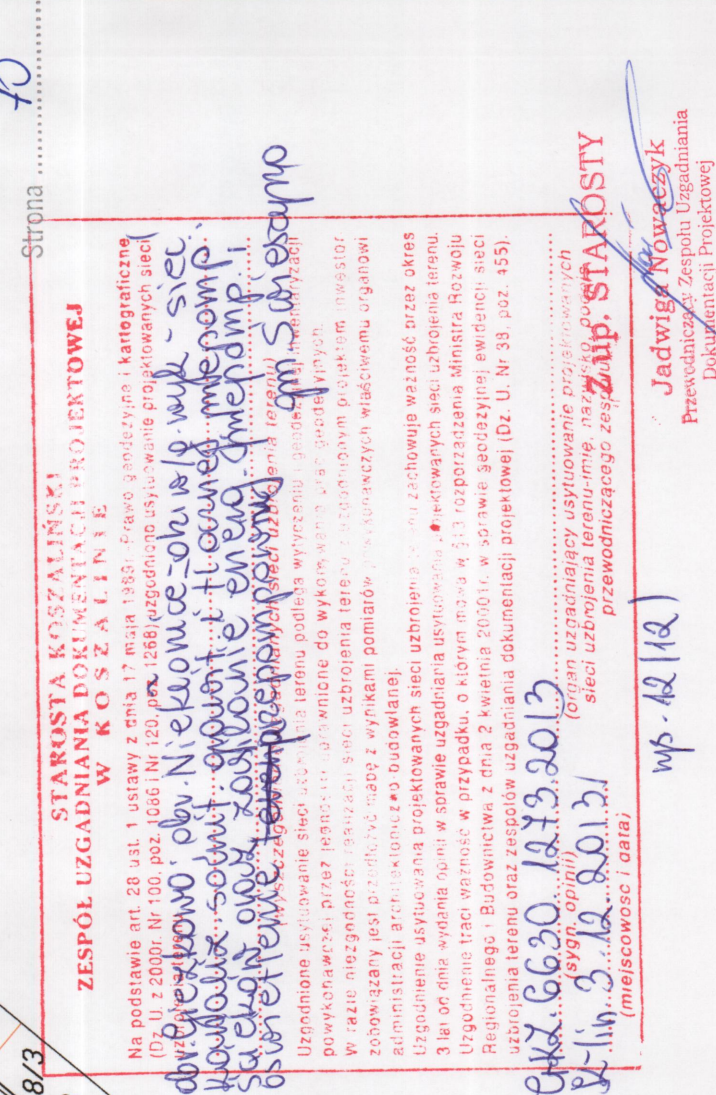 Strona
8/3
STAROSTA KOSZALIŃSKI
ZESPÓŁ UZGADNIANIA DOKUMENTACJI PROJEKTOWEJ
W KOSZALINIE
Na podstawie art. 28 ust. 1 ustawy z dnia 17 maja 1989r.-Prawo geodezyjne i kartograficzne
(Dz. U. z 2000r. Nr 100, poz. 1086 i Nr 120, poz. 1268) uzgodniono usytuowanie projektowanych sieci
obr. Niekłonice
kanaliz. sanit. grawit. i tłocznej
ścieków oraz zasilanie energ.
oświetlenie
gm. Świeszyno
Uzgodnione usytuowanie sieci uzbrojenia terenu podlega wytyczeniu i geodezyjnej inwentaryzacji
powykonawczej przez jednostki uprawnione do wykonywania prac geodezyjnych.
W razie niezgodności realizacji sieci uzbrojenia terenu z uzgodnionym projektem inwestor
zobowiązany jest przedłożyć mapę z wynikami pomiarów powykonawczych właściwemu organowi
administracji architektoniczno budowlanej.
Uzgodnienie usytuowania projektowanych sieci uzbrojenia terenu zachowuje ważność przez okres
3 lat od dnia wydania opinii w sprawie uzgadniania usytuowania projektowanych sieci uzbrojenia terenu.
Uzgodnienie traci ważność w przypadku, o którym mowa w §13 rozporządzenia Ministra Rozwoju
Regionalnego i Budownictwa z dnia 2 kwietnia 20001r. w sprawie geodezyjnej ewidencji sieci
uzbrojenia terenu oraz zespołów uzgadniania dokumentacji projektowej (Dz. U. Nr 38, poz. 455).
GKZ.6630.1273.2013
(sygn. opinii)
K-lin. 3.12.2013r
(miejscowość i data)
(organ uzgadniający usytuowanie projektowanych
sieci uzbrojenia terenu-imię, nazwisko, podpis
przewodniczącego zespołu)
Z up. STAROSTY
Jadwiga Nowaczyk
Przewodniczący Zespołu Uzgadniania
Dokumentacji Projektowej